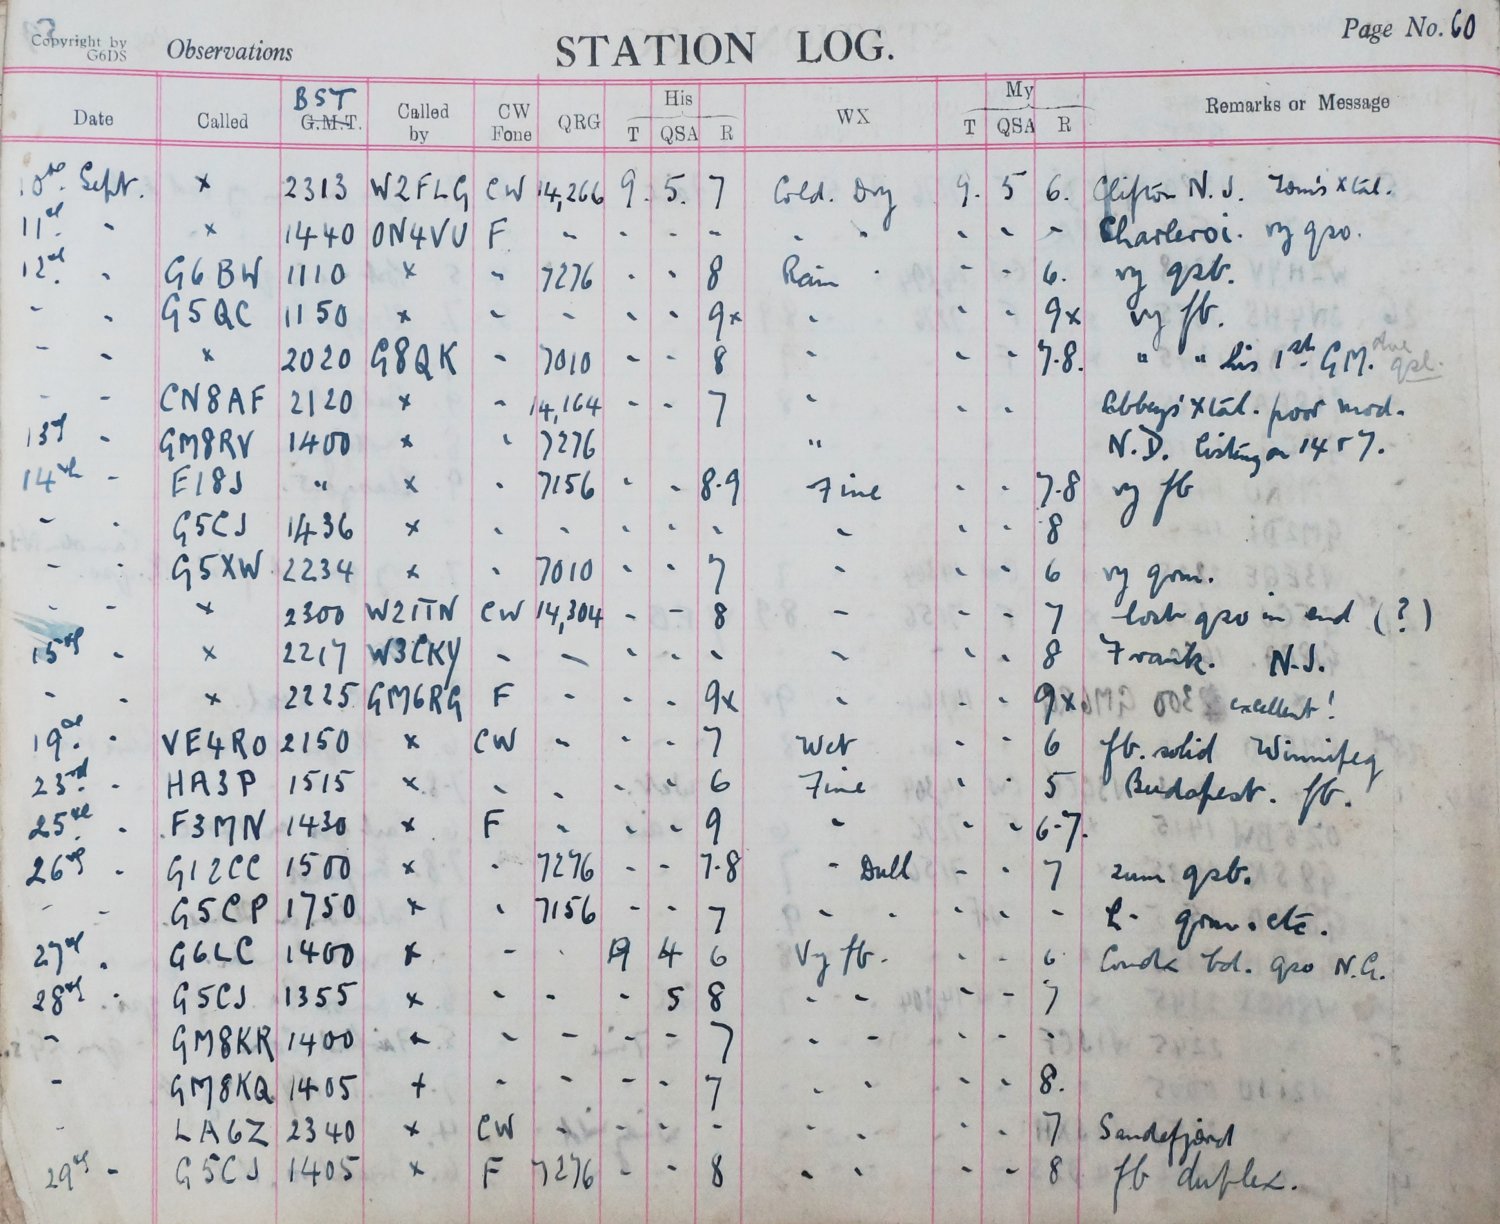 Copyright by G6DS Observations STATION LOG. Page No. 60
Date Called BST G.M.T. Called by CW Fone QRG His T QSA R WX My T QSA R Remarks or Message
10th Sept. x 2313 W2FLG CW 14,266 9. 5. 7 Cold. Dry 9. 5 6. Clifton N.J. Xtal.
11th " x 1440 ON4VU F - - - - - - - - - Charleroi. vy qso.
12th " G6BW 1110 x - 7276 - - 8 Rain - - 6. vy qsb.
- - G5QC 1150 x - - - - 9x - 9x vy fb.
- - x 2020 G8QK - 7010 - - 8 - - - 7-8. " " his 1st GM. due qsl.
- - CN8AF 2120 x - 14,164 - - 7 - - - Xtal. poor mod.
13th - GM8RV 1400 x - 7276 " N.D. listing on 14 r 7.
14th - EI8J " x - 7156 - - 8-9 Fine - - 7-8 vy fb
- - G5CJ 1436 x - - - - - - - - 8
- - G5XW 2234 x - 7010 - - 7 - - - 6 vy qrm.
- - x 2300 W2ITN CW 14,304 - - 8 - - - 7 lost qso in end (?)
15th - x 2217 W3CKY - - - - - - - - 8 Frank. N.J.
- - x 2225 GM6RG F - - - 9x - - - 9x excellent!
19th - VE4RO 2150 x CW - - - 7 Wet - - 6 fb. solid Winnipeg
23rd - HA3P 1515 x - - - - 6 Fine - - 5 Budapest. fb.
25th - F3MN 1430 x F - - - 9 - - - 6-7.
26th - GI2CC 1500 x - 7276 - - 7-8 - Dull - - 7 sum qsb.
- - G5CP 1750 x - 7156 - - 7 - - - - - qrm. etc.
27th - G6LC 1400 x - - 9 4 6 Vy fb. - - 6 Condx bd. qso N.G.
28th - G5CJ 1355 x - - - 5 8 - - - - 7
- GM8KR 1400 x - - - - 7 - - - - -
- GM8KQ 1405 + - - - - 7 - - - - 8.
- LA6Z 2340 x CW - - - - - - - - 7 Sandefjord
29th - G5CJ 1405 x F 7276 - - 8 - - - - 8 fb duplex.